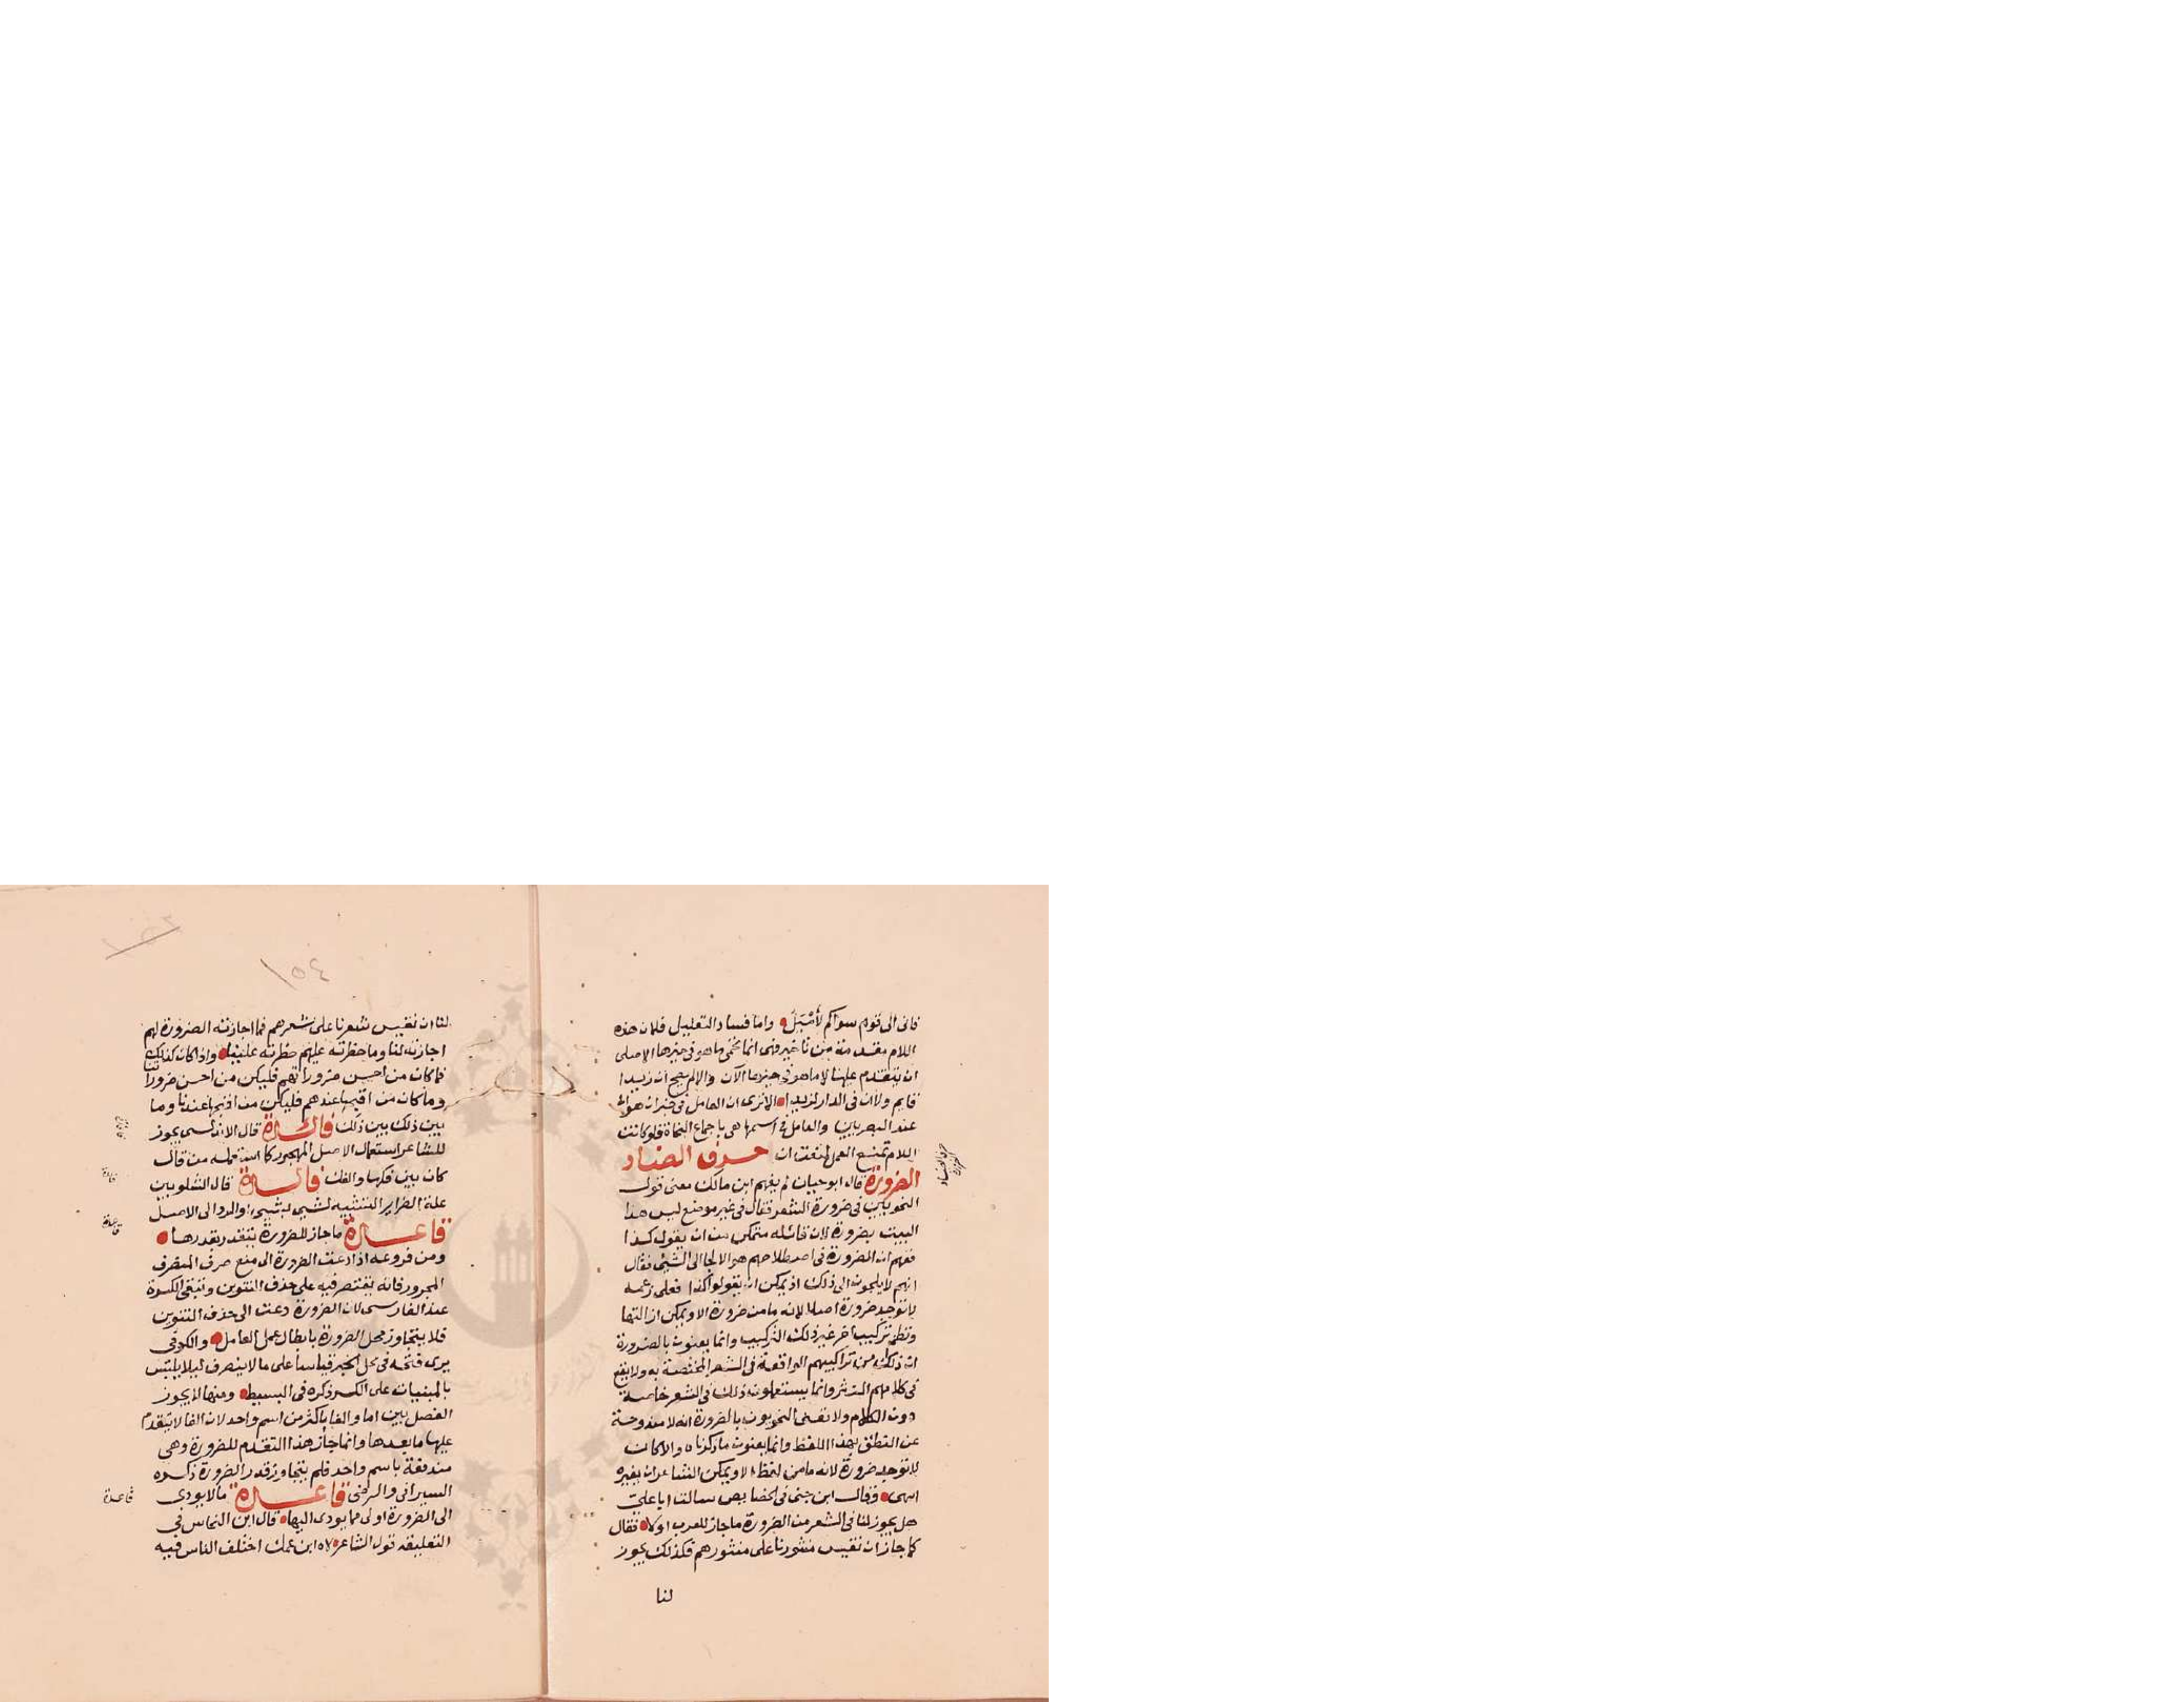 فاني الى قوم سواكم لأَمْيَلُ واما فساد التعليل فلان هذه
اللام مقدمة من تاخير فهي انما تحمي ما هو في حيزها الاصلي
ان يتقدم عليها لا ما هو في حيزها الآن والا لم يصح ان زيدا
قايم ولا ان في الدار لزيدا الا ترى ان العامل في خبر ان هو ان
عند البصريين والعامل في اسمها هي باجماع النحاة فلو كانت
اللام تمنع العمل لمنعت ان حرف الضاد
الضرورة قال ابو حيان لم يفهم ابن مالك معنى قول
النحويين في ضرورة الشعر فقال في غير موضع ليس هذا
البيت بضرورة لان قائله متمكن من ان يقول كذا
ففهم ان الضرورة في اصطلاحهم هو الالجا الى الشيء فقال
انهم لا يلجون الى ذلك اذ يمكن ان يقولوا كذا فعلى زعمه
لا توجد ضرورة اصلا لانه ما من ضرورة الا ويمكن ازالتها
ونظم تركيب اخر غير ذلك التركيب وانما يعنون بالضرورة
ان ذلك من تراكيبهم الواقعة في الشعر المختصة به ولا يقع
في كلامهم النثر وانما يستعملون ذلك في الشعر خاصة
دون الكلام ولا تعنى النحويون بالضرورة انه لا مندوحة
عن النطق بهذا اللفظ وانما يعنون ما ذكرناه والا كان
لا توجد ضرورة لانه ما من لفظ الا ويمكن الشاعر ان يغيره
انتهى وقال ابن جني في الخصايص سالت ابا علي
هل يجوز لنا في الشعر من الضرورة ما جاز للعرب اولا فقال
كما جاز ان نقيس منثورنا على منثورهم فكذلك يجوز
لنا
حرف الضاد
الضرورة
١٥٤
لنا ان نقيس شعرنا على شعرهم فما اجازته الضرورة لهم
اجازته لنا وما حظرته عليهم حظرته علينا واذا كان كذلك
فما كان من احسن ضروراتهم فليكن من احسن ضروراتنا
وما كان من اقبحها عندهم فليكن من اقبحها عندنا وما
بين ذلك بين ذلك فائدة قال الاندلسي يجوز
للشاعر استعمال الاصل المهجور كما استعمله من قال
كان بين فكها والفك فائدة قال الشلوبين
علة الضراير التشبيه لشيء بشيء او الرد الى الاصل
قاعدة ما جاز للضرورة يتقدر بقدرها
ومن فروعه اذا دعت الضرورة الى منع صرف المنصرف
المجرور فانه يقتصر فيه على حذف التنوين وتبقى الكسرة
عند الفارسي لان الضرورة دعت الى حذف التنوين
فلا يتجاوز محل الضرورة بابطال عمل العامل والكوفي
يرى فتحه في محل الجر قياسا على ما لا ينصرف ليلا يلتبس
بالمبنيات على الكسر ذكره في البسيط ومنها لا يجوز
الفصل بين اما والفا باكثر من اسم واحد لان الفا لا يتقدم
عليها ما بعدها وانما جاز هذا التقدم للضرورة وهي
مندفعة باسم واحد فلم يتجاوز قدر الضرورة ذكره
السيرافي والرضي قاعدة ما لا يودي
الى الضرورة اولى مما يودى اليها قال ابن النحاس في
التعليقه قول الشاعر لاه ابن عمك اختلف الناس فيه
فائدة
فائدة
قاعدة
قاعدة